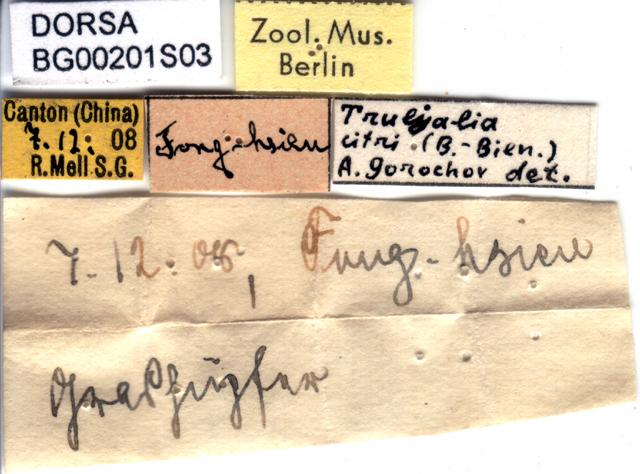 DORSA
BG00201S03
Zool. Mus.
Berlin
Canton (China)
7.12. 08
R. Mell S.G.
Fong-hsien
Truljalia
citri (B.-Bien.)
A. Gorochov det.
7.12.08, Fong-hsien
Grashüpfer